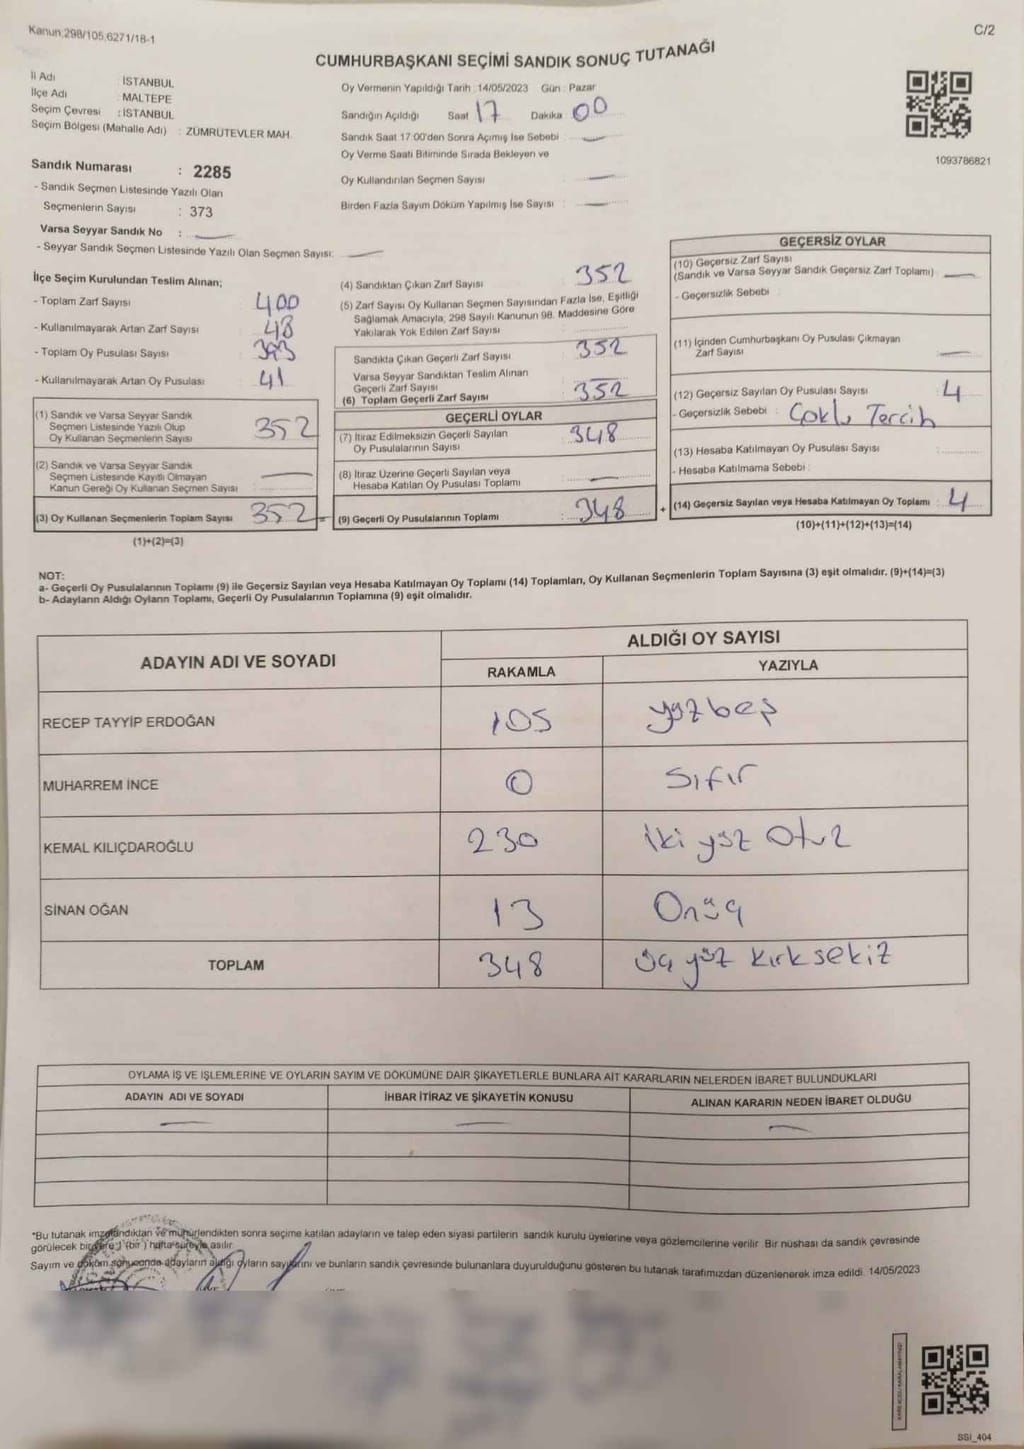 Kanun:298/105,6271/18-1
C/2
CUMHURBAŞKANI SEÇİMİ SANDIK SONUÇ TUTANAĞI
İl Adı : İSTANBUL
İlçe Adı : MALTEPE
Seçim Çevresi : İSTANBUL
Seçim Bölgesi (Mahalle Adı) : ZÜMRÜTEVLER MAH.
Oy Vermenin Yapıldığı Tarih :14/05/2023 Gün : Pazar
Sandığın Açıldığı Saat 17 Dakika 00
Sandık Saat 17:00'den Sonra Açımış İse Sebebi : —
Oy Verme Saati Bitiminde Sırada Bekleyen ve
Oy Kullandırılan Seçmen Sayısı : —
Birden Fazla Sayım Döküm Yapılmış İse Sayısı : —
1093786821
Sandık Numarası : 2285
- Sandık Seçmen Listesinde Yazılı Olan
Seçmenlerin Sayısı : 373
Varsa Seyyar Sandık No : —
- Seyyar Sandık Seçmen Listesinde Yazılı Olan Seçmen Sayısı: —
İlçe Seçim Kurulundan Teslim Alınan;
- Toplam Zarf Sayısı 400
- Kullanılmayarak Artan Zarf Sayısı 48
- Toplam Oy Pusulası Sayısı 393
- Kullanılmayarak Artan Oy Pusulası 41
(1) Sandık ve Varsa Seyyar Sandık
Seçmen Listesinde Yazılı Olup
Oy Kullanan Seçmenlerin Sayısı 352
(2) Sandık ve Varsa Seyyar Sandık
Seçmen Listesinde Kayıtlı Olmayan
Kanun Gereği Oy Kullanan Seçmen Sayısı : —
(3) Oy Kullanan Seçmenlerin Toplam Sayısı : 352 =
(1)+(2)=(3)
(4) Sandıktan Çıkan Zarf Sayısı : 352
(5) Zarf Sayısı Oy Kullanan Seçmen Sayısından Fazla İse, Eşitliği
Sağlamak Amacıyla, 298 Sayılı Kanunun 98. Maddesine Göre
Yakılarak Yok Edilen Zarf Sayısı
Sandıkta Çıkan Geçerli Zarf Sayısı : 352
Varsa Seyyar Sandıktan Teslim Alınan
Geçerli Zarf Sayısı : —
(6) Toplam Geçerli Zarf Sayısı : 352
GEÇERLİ OYLAR
(7) İtiraz Edilmeksizin Geçerli Sayılan
Oy Pusulalarının Sayısı : 348
(8) İtiraz Üzerine Geçerli Sayılan veya
Hesaba Katılan Oy Pusulası Toplamı : —
(9) Geçerli Oy Pusulalarının Toplamı : 348 +
GEÇERSİZ OYLAR
(10) Geçersiz Zarf Sayısı
(Sandık ve Varsa Seyyar Sandık Geçersiz Zarf Toplamı) : —
- Geçersizlik Sebebi :
(11) İçinden Cumhurbaşkanı Oy Pusulası Çıkmayan
Zarf Sayısı : —
(12) Geçersiz Sayılan Oy Pusulası Sayısı : 4
- Geçersizlik Sebebi : Çoklu Tercih
(13) Hesaba Katılmayan Oy Pusulası Sayısı :
- Hesaba Katılmama Sebebi :
(14) Geçersiz Sayılan veya Hesaba Katılmayan Oy Toplamı : 4
(10)+(11)+(12)+(13)=(14)
NOT:
a- Geçerli Oy Pusulalarının Toplamı (9) ile Geçersiz Sayılan veya Hesaba Katılmayan Oy Toplamı (14) Toplamları, Oy Kullanan Seçmenlerin Toplam Sayısına (3) eşit olmalıdır. (9)+(14)=(3)
b- Adayların Aldığı Oyların Toplamı, Geçerli Oy Pusulalarının Toplamına (9) eşit olmalıdır.
ADAYIN ADI VE SOYADI
ALDIĞI OY SAYISI
RAKAMLA YAZIYLA
RECEP TAYYİP ERDOĞAN 105 yüzbeş
MUHARREM İNCE 0 Sıfır
KEMAL KILIÇDAROĞLU 230 İki yüz Otuz
SİNAN OĞAN 13 Onüç
TOPLAM 348 Üç yüz Kırk sekiz
OYLAMA İŞ VE İŞLEMLERİNE VE OYLARIN SAYIM VE DÖKÜMÜNE DAİR ŞİKAYETLERLE BUNLARA AİT KARARLARIN NELERDEN İBARET BULUNDUKLARI
ADAYIN ADI VE SOYADI İHBAR İTİRAZ VE ŞİKAYETİN KONUSU ALINAN KARARIN NEDEN İBARET OLDUĞU
— — —
*Bu tutanak imzalandıktan ve mühürlendikten sonra seçime katılan adayların ve talep eden siyasi partilerin sandık kurulu üyelerine veya gözlemcilerine verilir. Bir nüshası da sandık çevresinde
görülecek bir yere 1 (bir) hafta süreyle asılır.
Sayım ve döküm sonucunda adayların aldığı oyların sayılarını ve bunların sandık çevresinde bulunanlara duyurulduğunu gösteren bu tutanak tarafımızdan düzenlenerek imza edildi. 14/05/2023
SSI_404